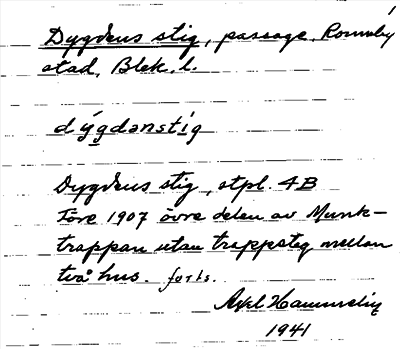 1
Dygdens stig, passage. Ronneby
stad, Blek. l.
dýgdənstíg
Dygdens stig, stpl. 4B
Före 1907 övre delen av Munk-
trappan utan trappsteg mellan
två hus. forts.
Axel Hammelin
1941